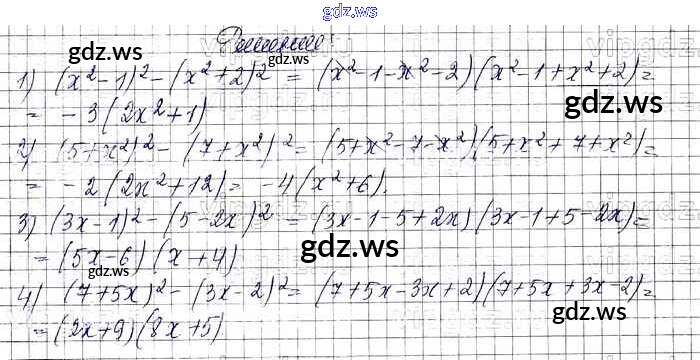 gdz.ws
Решение:
gdz.ws
1) (x²-1)²-(x²+2)² = (x²-1-x²-2)(x²-1+x²+2)=
= -3(2x²+1)
gdz.ws
2) (5+x²)²-(7+x²)² = (5+x²-7-x²)(5+x²+7+x²)=
= -2(2x²+12)= -4(x²+6).
3) (3x-1)²-(5-2x)² = (3x-1-5+2x)(3x-1+5-2x)=
gdz.ws
= (5x-6)(x+4)
gdz.ws
4) (7+5x)²-(3x-2)²= (7+5x-3x+2)(7+5x+3x-2)=
gdz.ws
= (2x+9)(8x+5)
gdz.ws